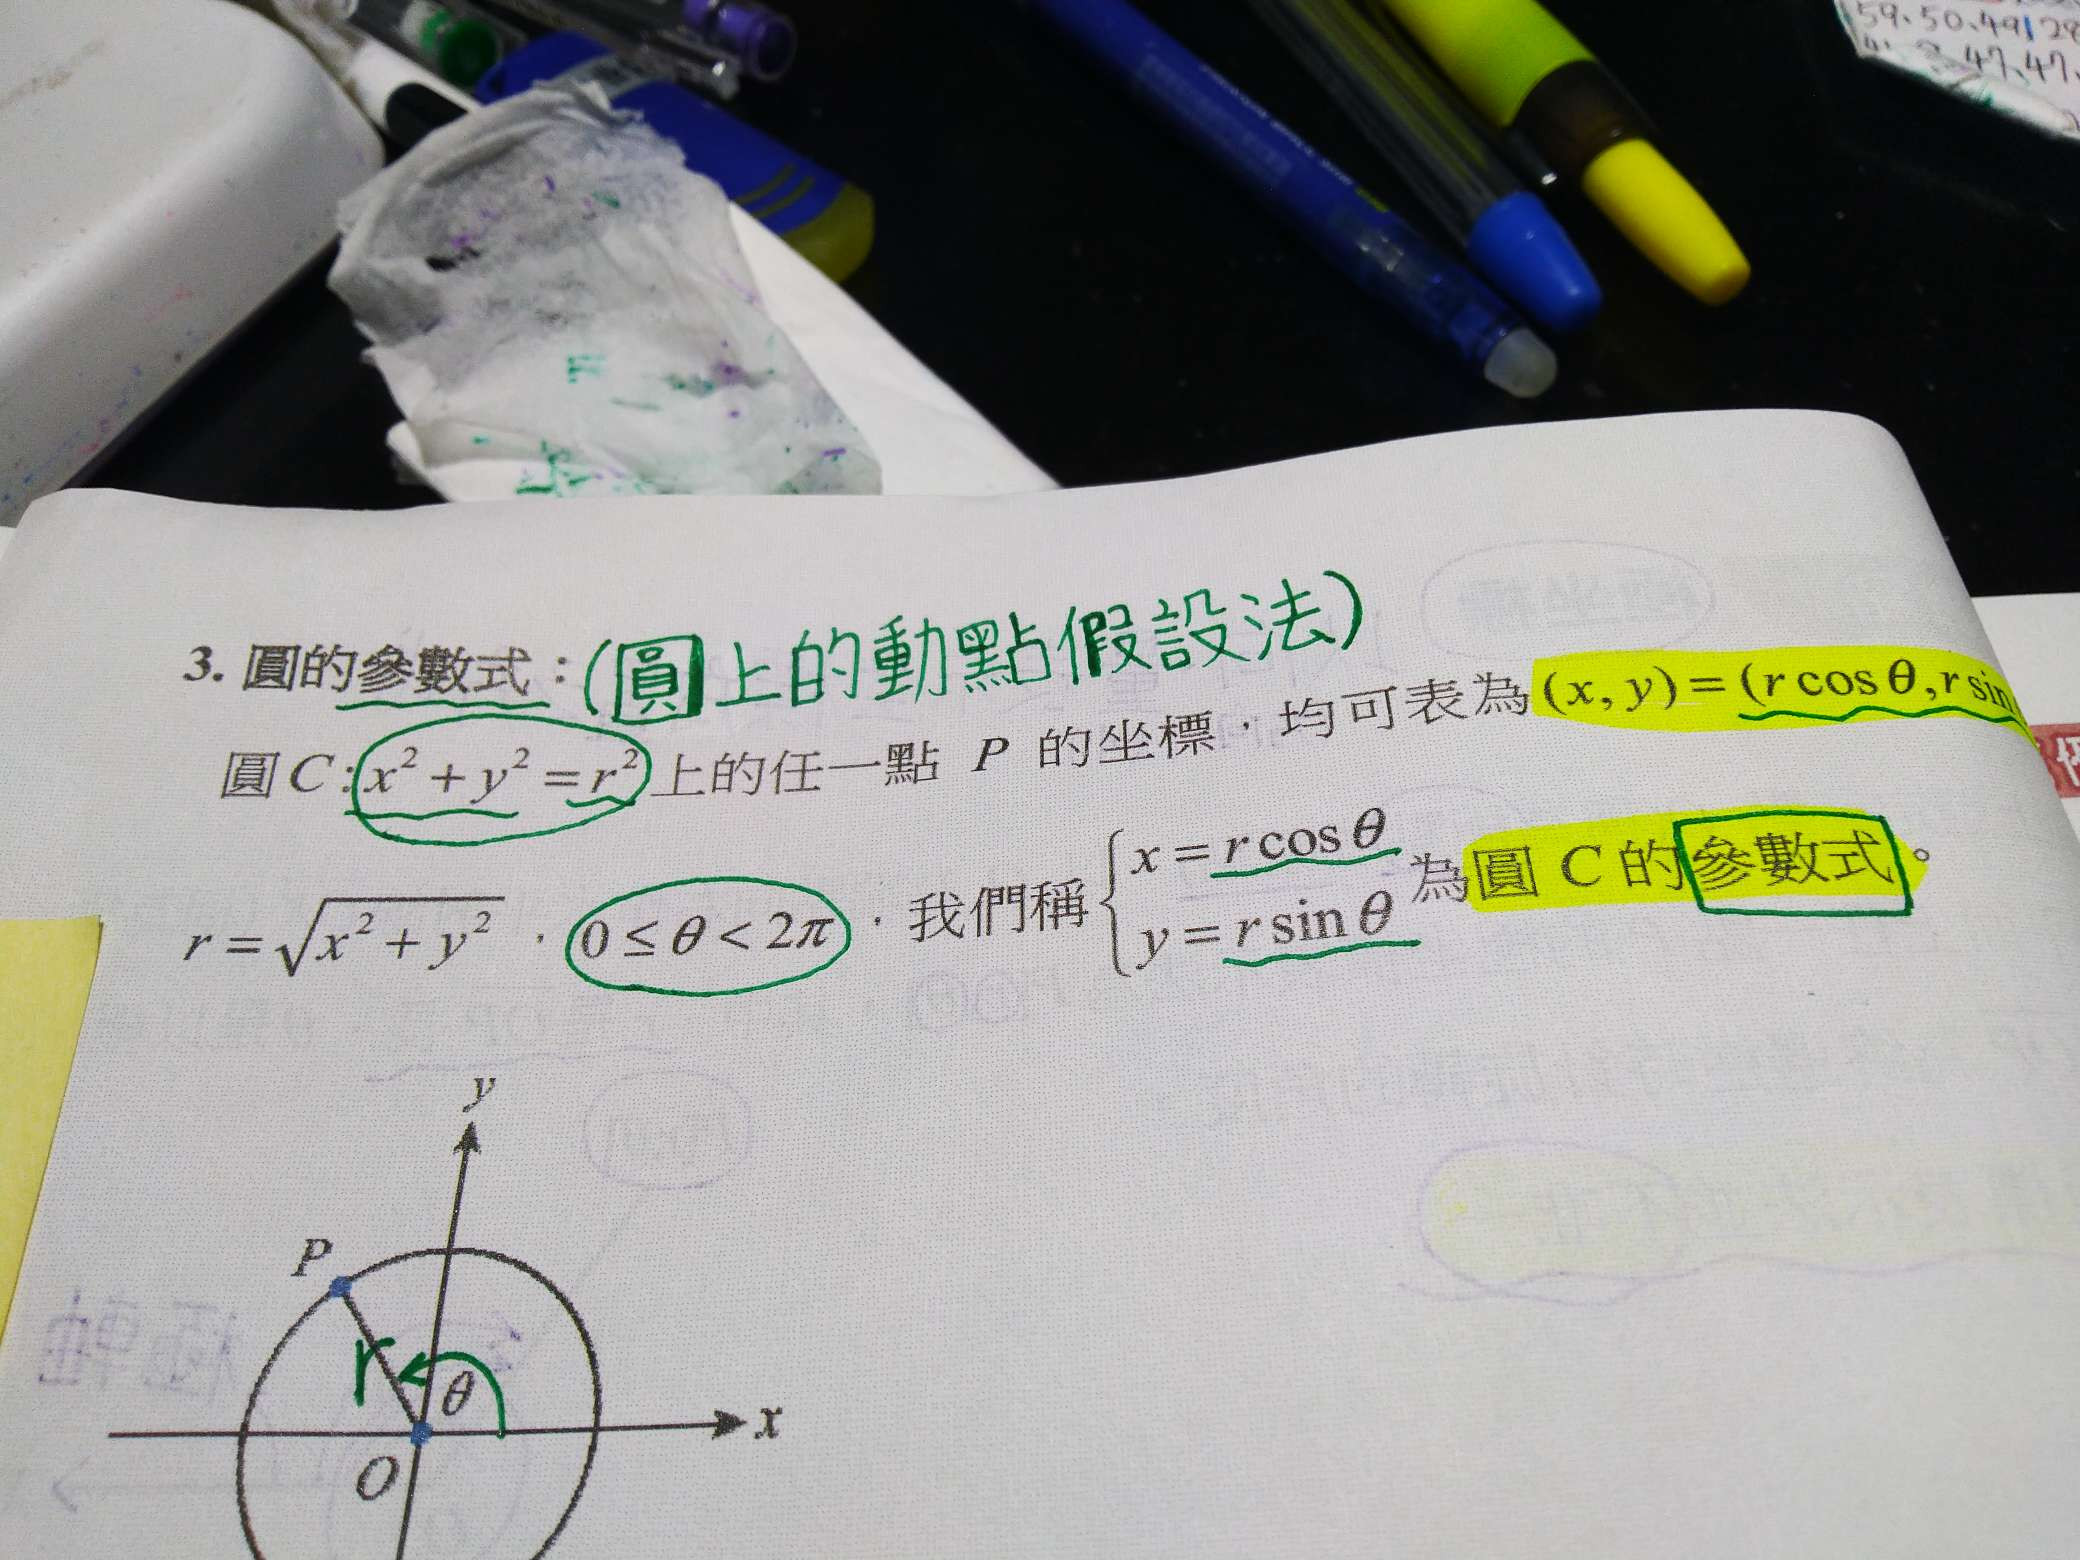 59、50、49
47、47、
3. 圓的參數式：(圓上的動點假設法)
圓 C : x² + y² = r² 上的任一點 P 的坐標，均可表為 (x, y) = (r cos θ, r sin
r = √(x² + y²) ，0 ≤ θ < 2π ，我們稱 { x = r cos θ
y = r sin θ 為圓 C 的參數式。
y
P
r
θ
x
O